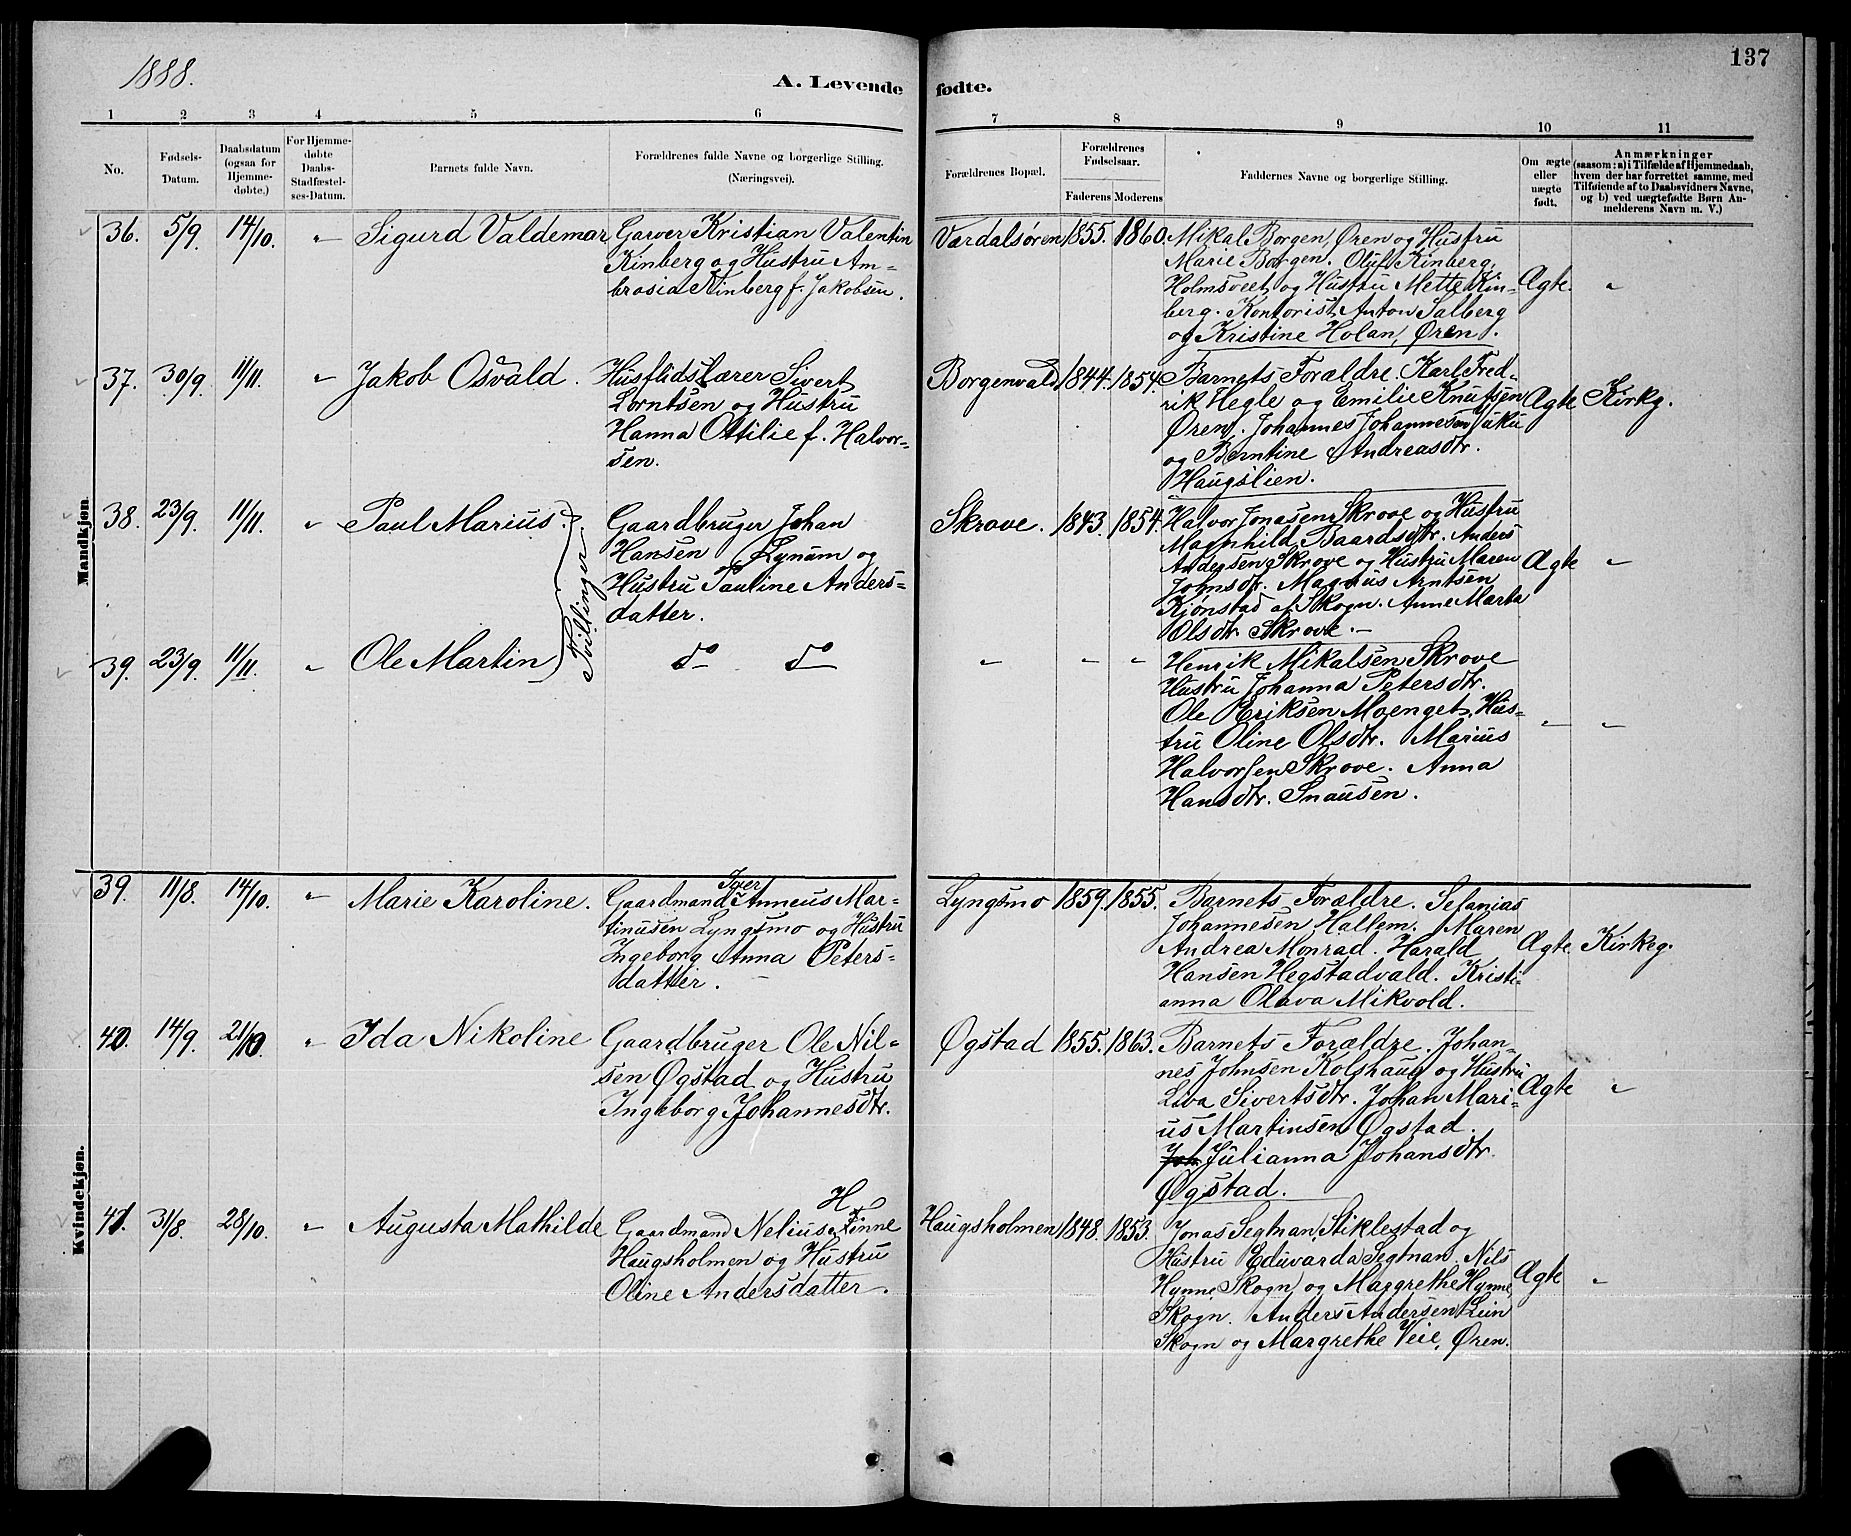 1888.
137
A. Levende fødte.
1 2 3 4 5 6 7 8 9 10 11
No.
Fødsels-
Datum.
Daabsdatum
(ogsaa for
Hjemme-
døbte.)
For Hjemme-
døbte
Daabs-
Stadfæstel-
ses-Datum.
Barnets fulde Navn.
Forældrenes fulde Navne og borgerlige Stilling.
(Næringsvei).
Forældrenes Bopæl.
Forældrenes
Fødselsaar.
Faderens Moderens
Faddernes Navne og borgerlige Stilling.
Om ægte
eller
uægte
født.
Anmærkninger
(saasom: a) i Tilfælde af Hjemmedaab,
hvem der har forrettet samme, med
Tilføiende af to Daabsvidners Navne,
og b) ved uægtefødte Børn An-
melderens Navn m. V.)
Mandkjøn
36. 5/9. 14/10. " Sigurd Valdemar
Garver Kristian Valentin
Kinberg og Hustru Am-
brosia Kinberg f. Jakobsen.
Værdalsøren 1855. 1860.
Mikal Borgen, Øren og Hustru
Marie Borgen. Oluf Kinberg,
Holmsveet og Hustru Mette Kin-
berg. Kontorist Anton Salberg
og Kristine Holan, Øren.
Ægte. "
37. 30/9. 11/11. " Jakob Osvald.
Husflidslærer Sivert
Lorntsen og Hustru
Hanna Ottilie f. Halvor-
sen.
Borgenvald 1844. 1854.
Barnets Forældre. Karl Fred-
rik Hegle og Emilie Knutsen
Øren. Johannes Johannesen
og Berntine Andreasdtr.
Haugslien.
Ægte Kirkg.
38. 23/9. 11/11. " Paul Marius.
Tvillinger
Gaardbruger Johan
Hansen Lynum og
Hustru Pauline Anders-
datter.
Skrove. 1843. 1854.
Halvor Jonasen Skrove og Hustru
Magnhild Baardsdtr. Anders
Andersen Skrove og Hustru Maren
Johnsdtr. Magnus Arntsen
Kjønstad af Skogn. Anne Marta
Olsdtr. Skrove.-
Ægte "
39. 23/9. 11/11. " Ole Martin
do do
" " "
Henrik Mikalsen Skrove
Hustru Johanna Petersdtr.
Ole Eriksen Moenget, Hus-
tru Oline Olsdtr. Marius
Halvorsen Skrove. Anna
Hansdtr. Snausen.
" "
Kvindekjøn.
39. 11/8. 14/10. " Marie Karoline.
Iver
Gaardmand Anneus Mar-
tinusen Lyngsmo og Hustru
Ingeborg Anna Peters-
datter. -
Lyngsmo 1859. 1855.
Barnets Forældre. Selanias
Johannesen Hallem. Maren
Andrea Monrad. Harald
Hansen Hegstadvald. Kristi-
anna Olava Mikvold.
Ægte Kirkeg.
40. 14/9. 21/10. " Ida Nikoline
Gaardbruger Ole Nil-
sen Øgstad og Hustru
Ingeborg Johannesdtr.
Øgstad 1855. 1863.
Barnets Forældre. Johan-
nes Johnsen Kolshaug og Hustru
Liva Sivertsdtr. Johan Mari-
us Martinsen Øgstad.
Julianna Johansdtr.
Øgstad.
Ægte "
41. 31/8. 28/10. " Augusta Mathilde
H
Gaardmand Nelius Finne
Haugsholmen og Hustru
Oline Andersdatter.
Haugsholmen 1848. 1853.
Jonas Segtnan, Stiklestad og
Hustru Eduvarda Segtnan. Nils
Hynne, Skogn, og Maggrethe Hynne,
Skogn. Anders Andersen Lein
Skogn og Margrethe Veie, Øren.
Ægte "